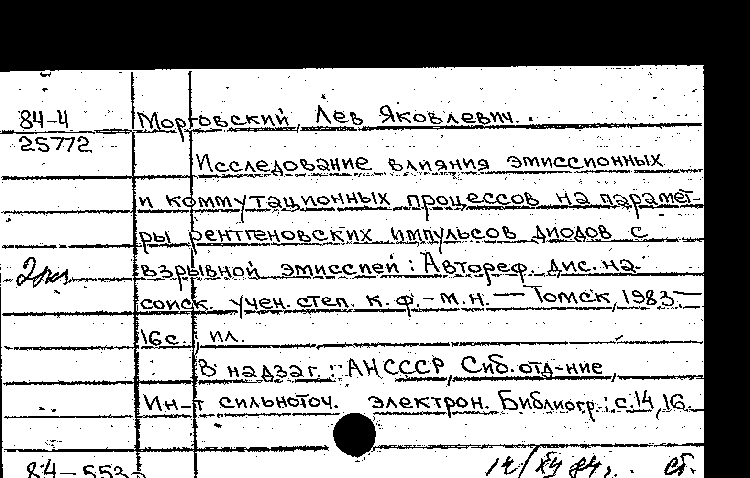 84-4 Морговский, Лев Яковлевич.
25772
Исследование влияния эмиссионных
и коммутационных процессов на парамет-
ры рентгеновских импульсов диодов с
2экз взрывной эмиссией : Автореф. дис. на
соиск. учен. степ. к. ф.-м. н. — Томск, 1983.—
16 с., ил.
В надзаг.: АН СССР, Сиб. отд-ние,
Ин-т сильноточ. электрон. Библиогр.: с. 14, 16.
84-553